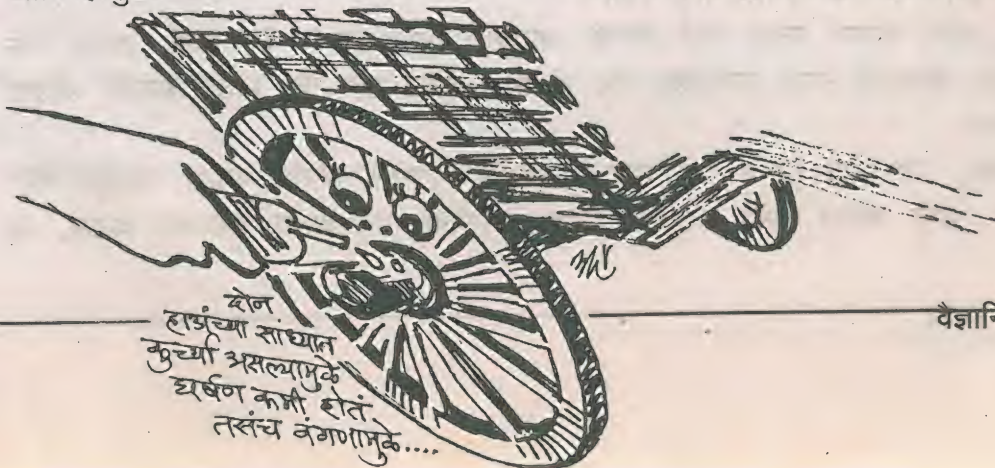 दोन
हाडांच्या सांध्यात
कुर्च्या असल्यामुळे
घर्षण कमी होतं
तसंच वंगणामुळे....